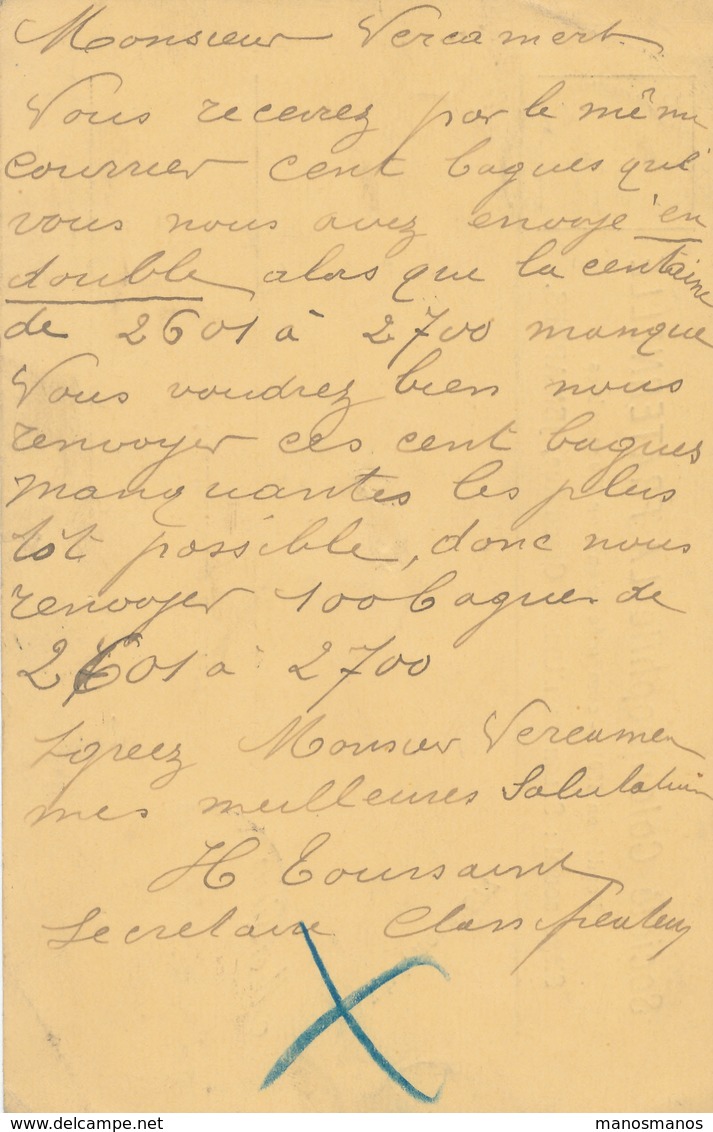 Monsieur Vercamert
Vous recevez par le même
courrier cent bagues que
vous nous avez envoyé en
double, alors que la centaine
de 2601 à 2700 manque
Vous voudrez bien nous
renvoyer ces cent bagues
manquantes les plus
tôt possible, donc nous
renvoyer 100 bagues de
2601 à 2700
Agreez Monsieur Vercamer
mes meilleures Salutations
H Toussaint
Secretaire Classificateur
manosmanos